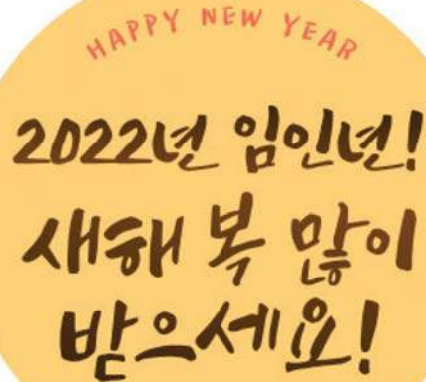 HAPPY NEW YEAR
2022년 임인년!
새해 복 많이
받으세요!